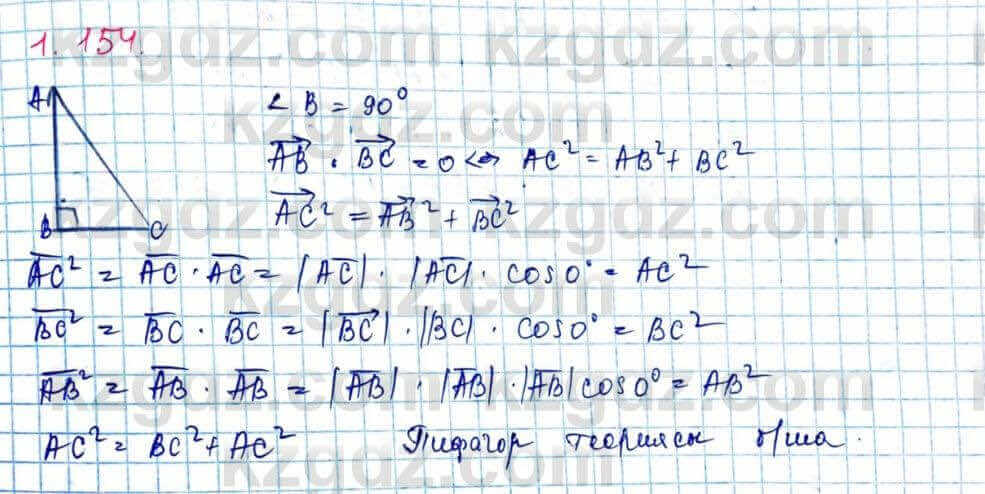 1. 154.
A
B
C
∠ B = 90⁰
\overrightarrow{AB} · \overrightarrow{BC} = 0 <=> AC² = AB² + BC²
\overrightarrow{AC}² = \overrightarrow{AB}² + \overrightarrow{BC}²
\overline{AC}² = \overline{AC} · \overline{AC} = |\overline{AC}| · |\overline{AC}| · cos0° = AC²
\overline{BC}² = \overline{BC} · \overline{BC} = |\overrightarrow{BC}| · |BC| · cos0° = BC²
\overline{AB}² = \overline{AB} · \overline{AB} = |\overline{AB}| · |\overline{AB}| · |\overline{AB}| cos0⁰ = AB²
AC² = BC² + AC² Пифагор
kzgdz.com